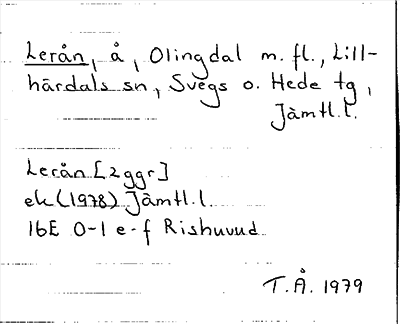 Lerån, å, Olingdal m. fl., Lill-
härdals sn, Svegs o. Hede tg,
Jämtl.l.
Lerån [2ggr]
ek (1978) Jämtl.l.
16E 0-1 e-f Rishuvud
T.Å. 1979